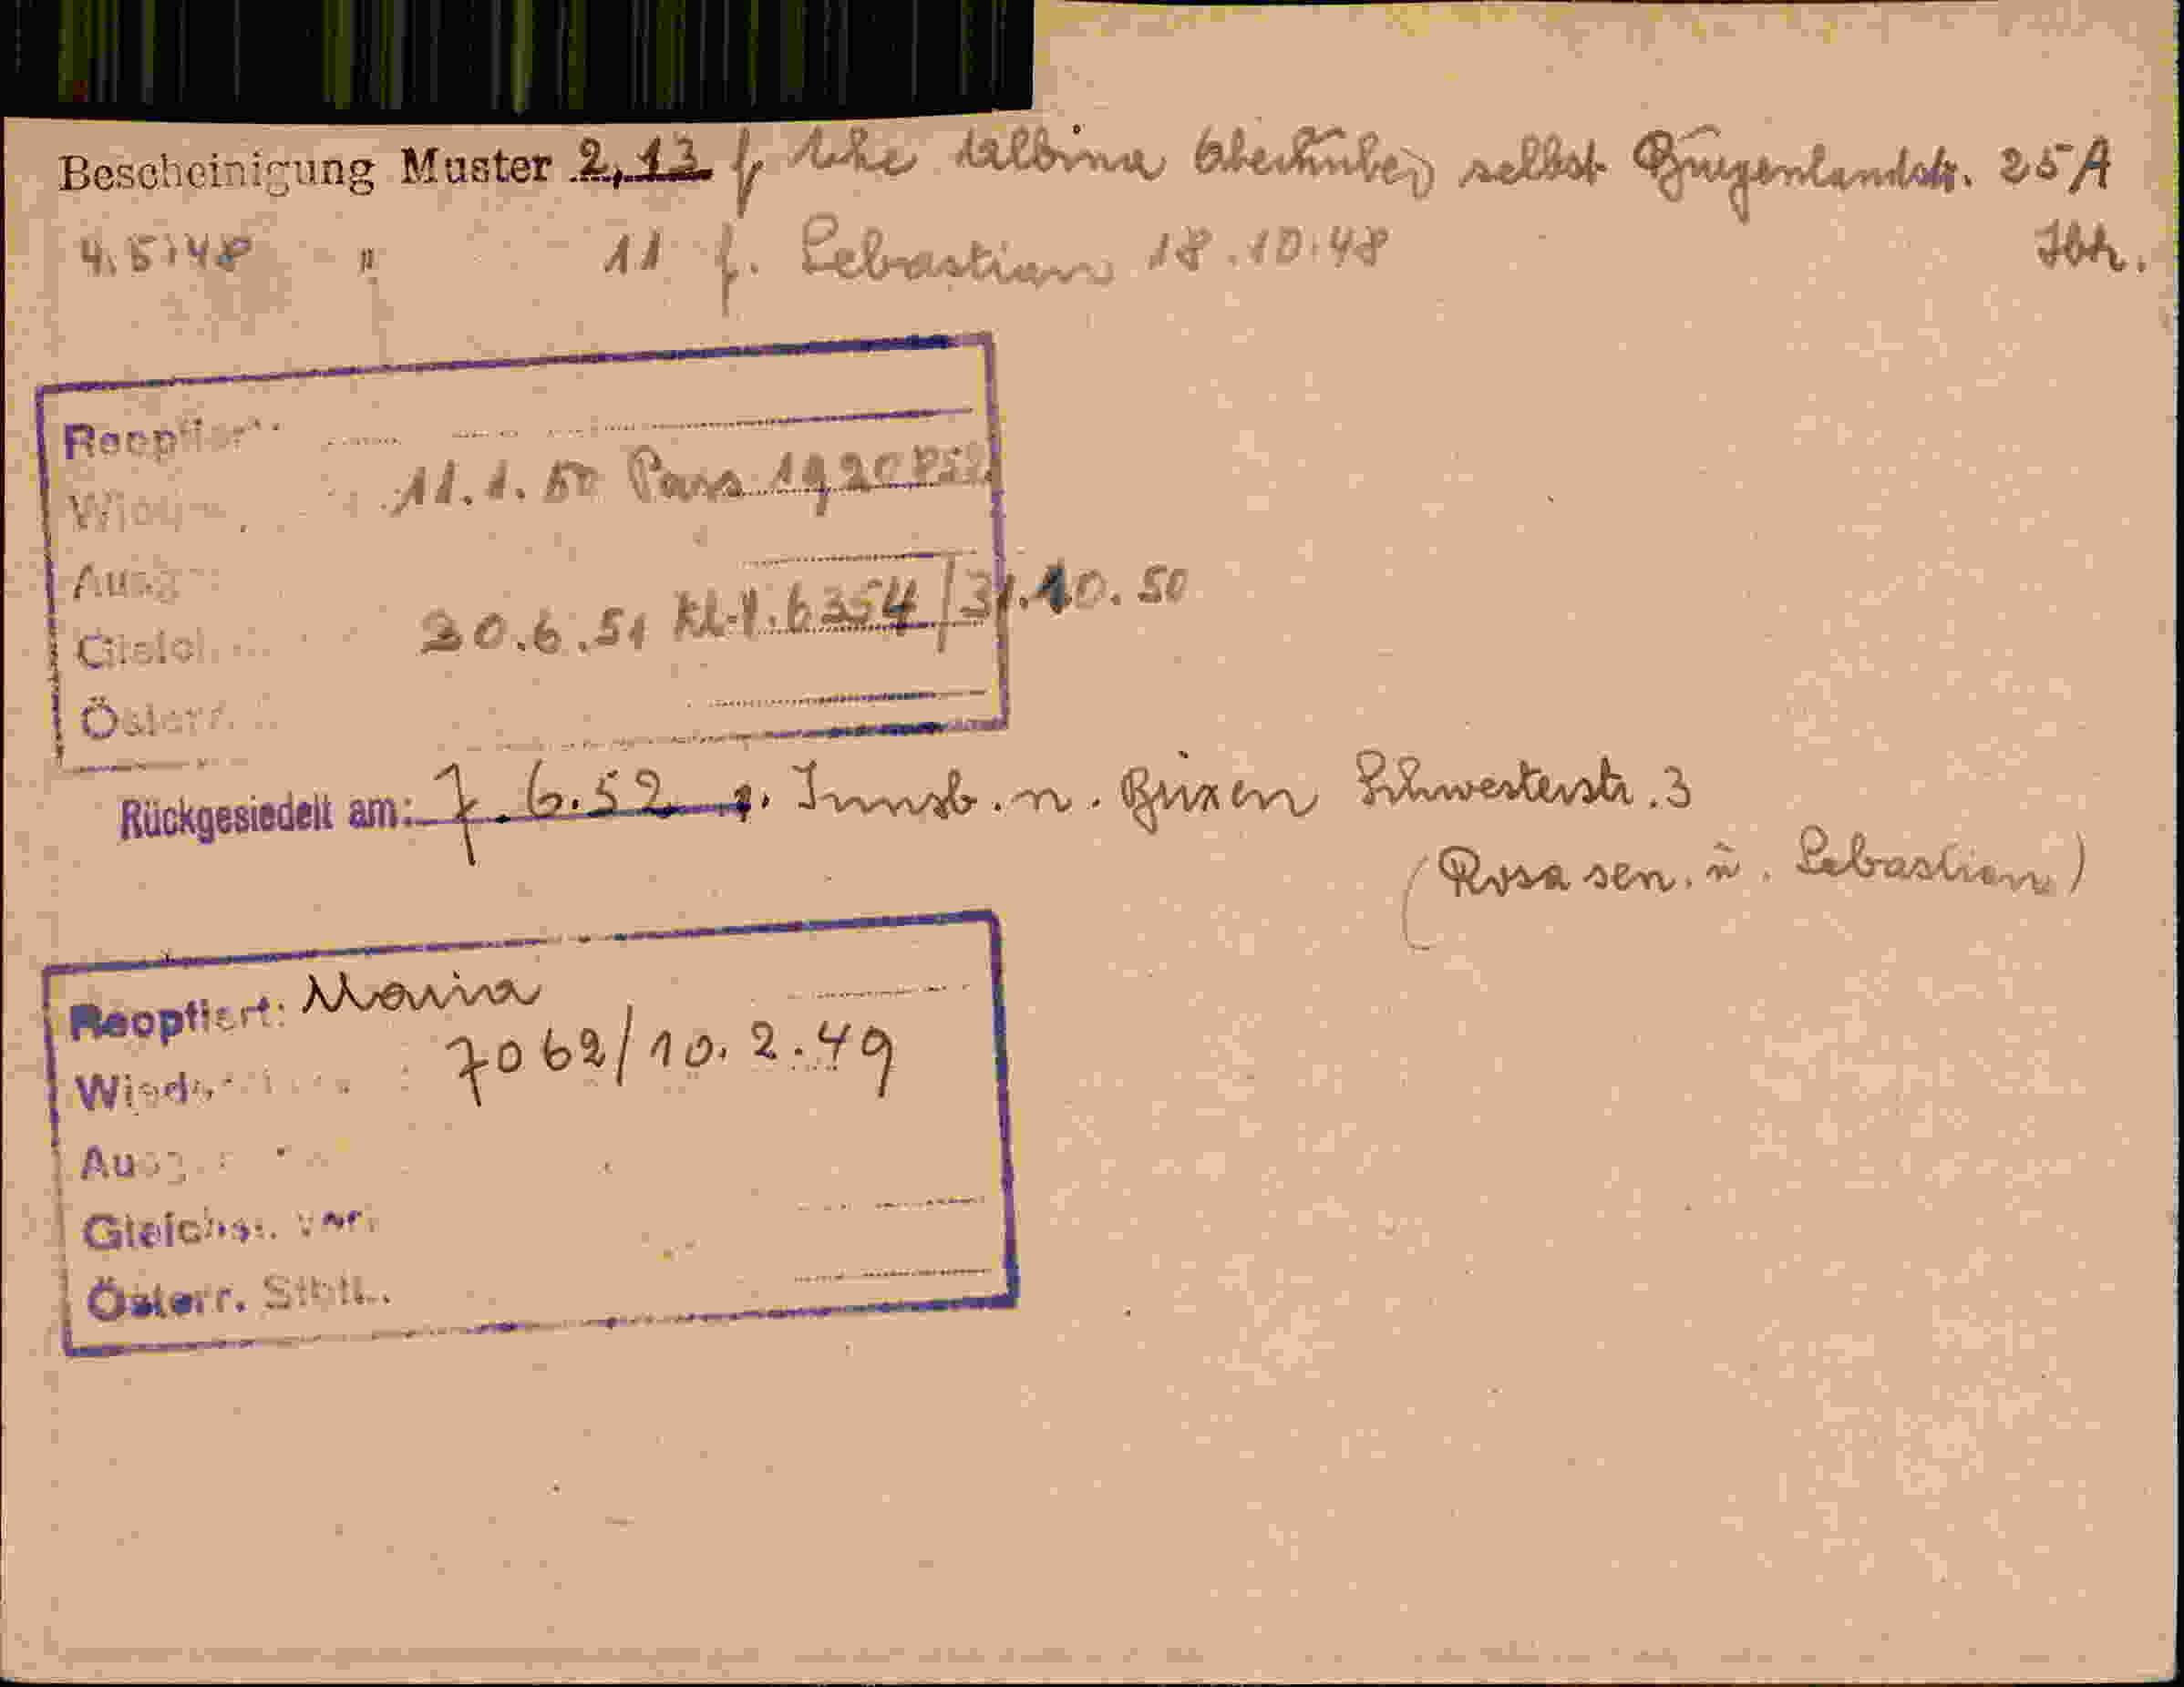 Bescheinigung Muster 2,13 f. Albina selbst Burgenlandstr. 25A
4.5.48 " 11 f. Sebastian 18.10.48 Ibk.
Reoptiert:
11.1.50 Pass 1920
20.6.51 6354/31.10.50
Österr.
Rückgesiedelt am: 7.6.52 v. Innsb. n. Brixen Schwesterstr. 3
(Rosa sen. u. Sebastian)
Reoptiert: Maria
7062/10.2.49
Österr. Stbtl.